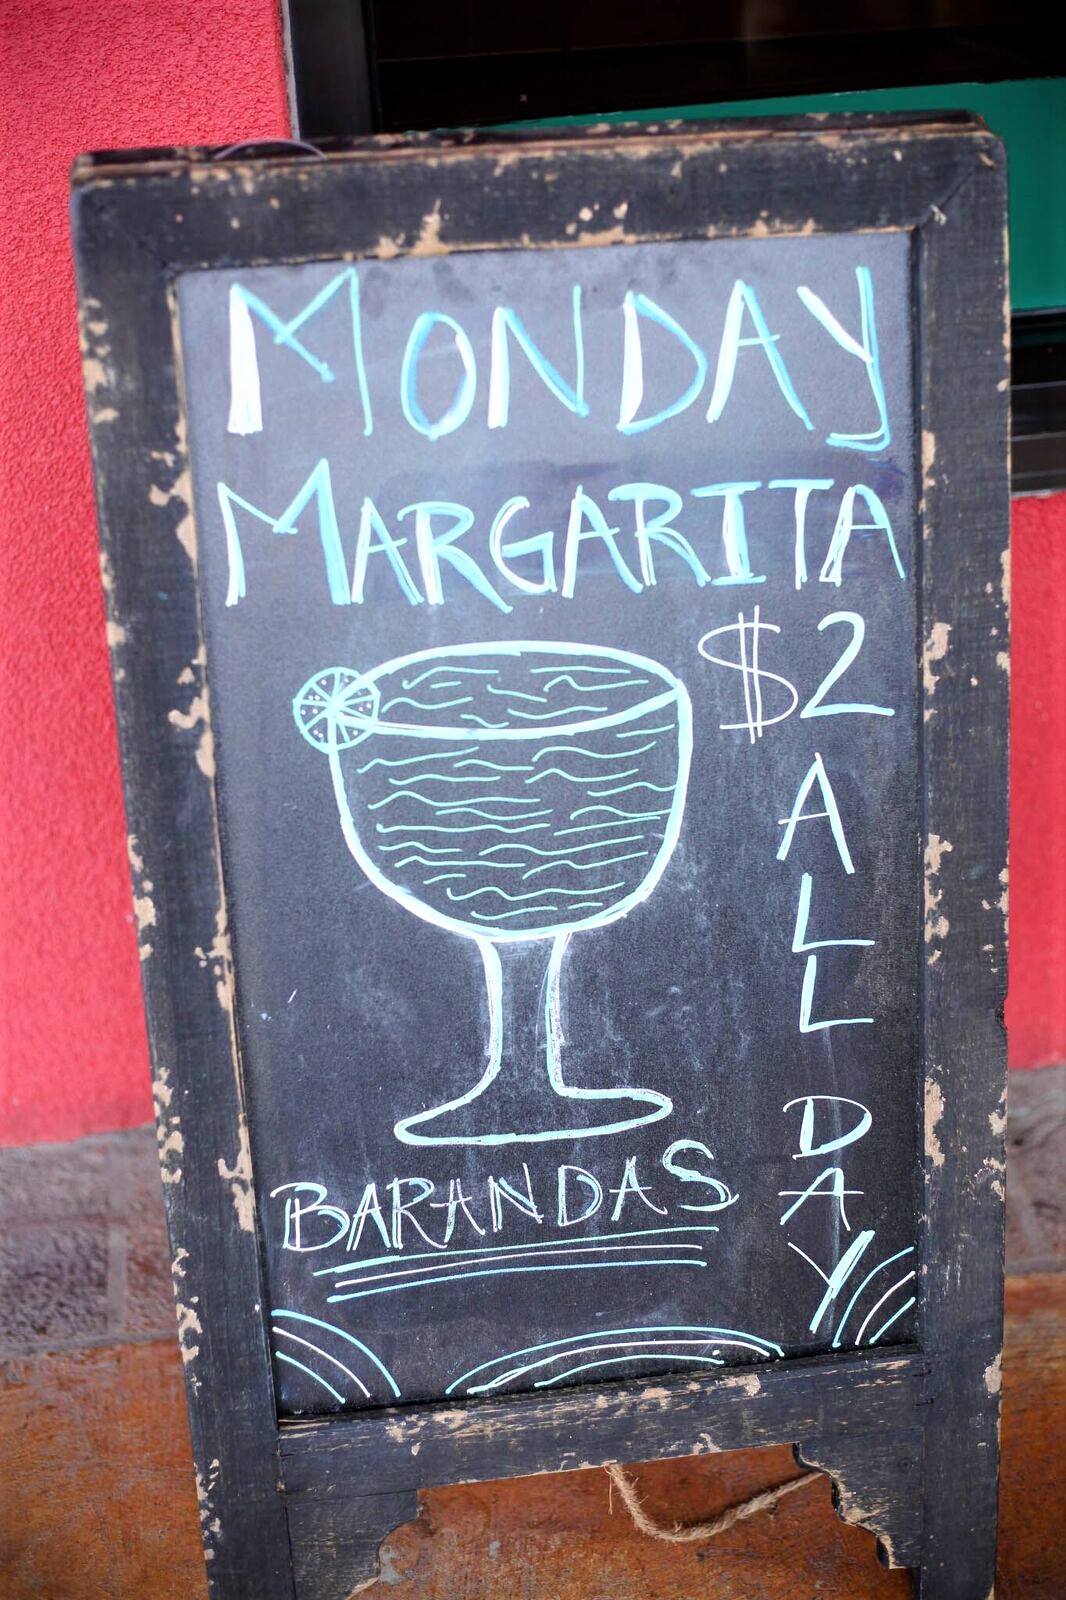 MONDAY
MARGARITA
$2
ALL
DAY
BARANDAS